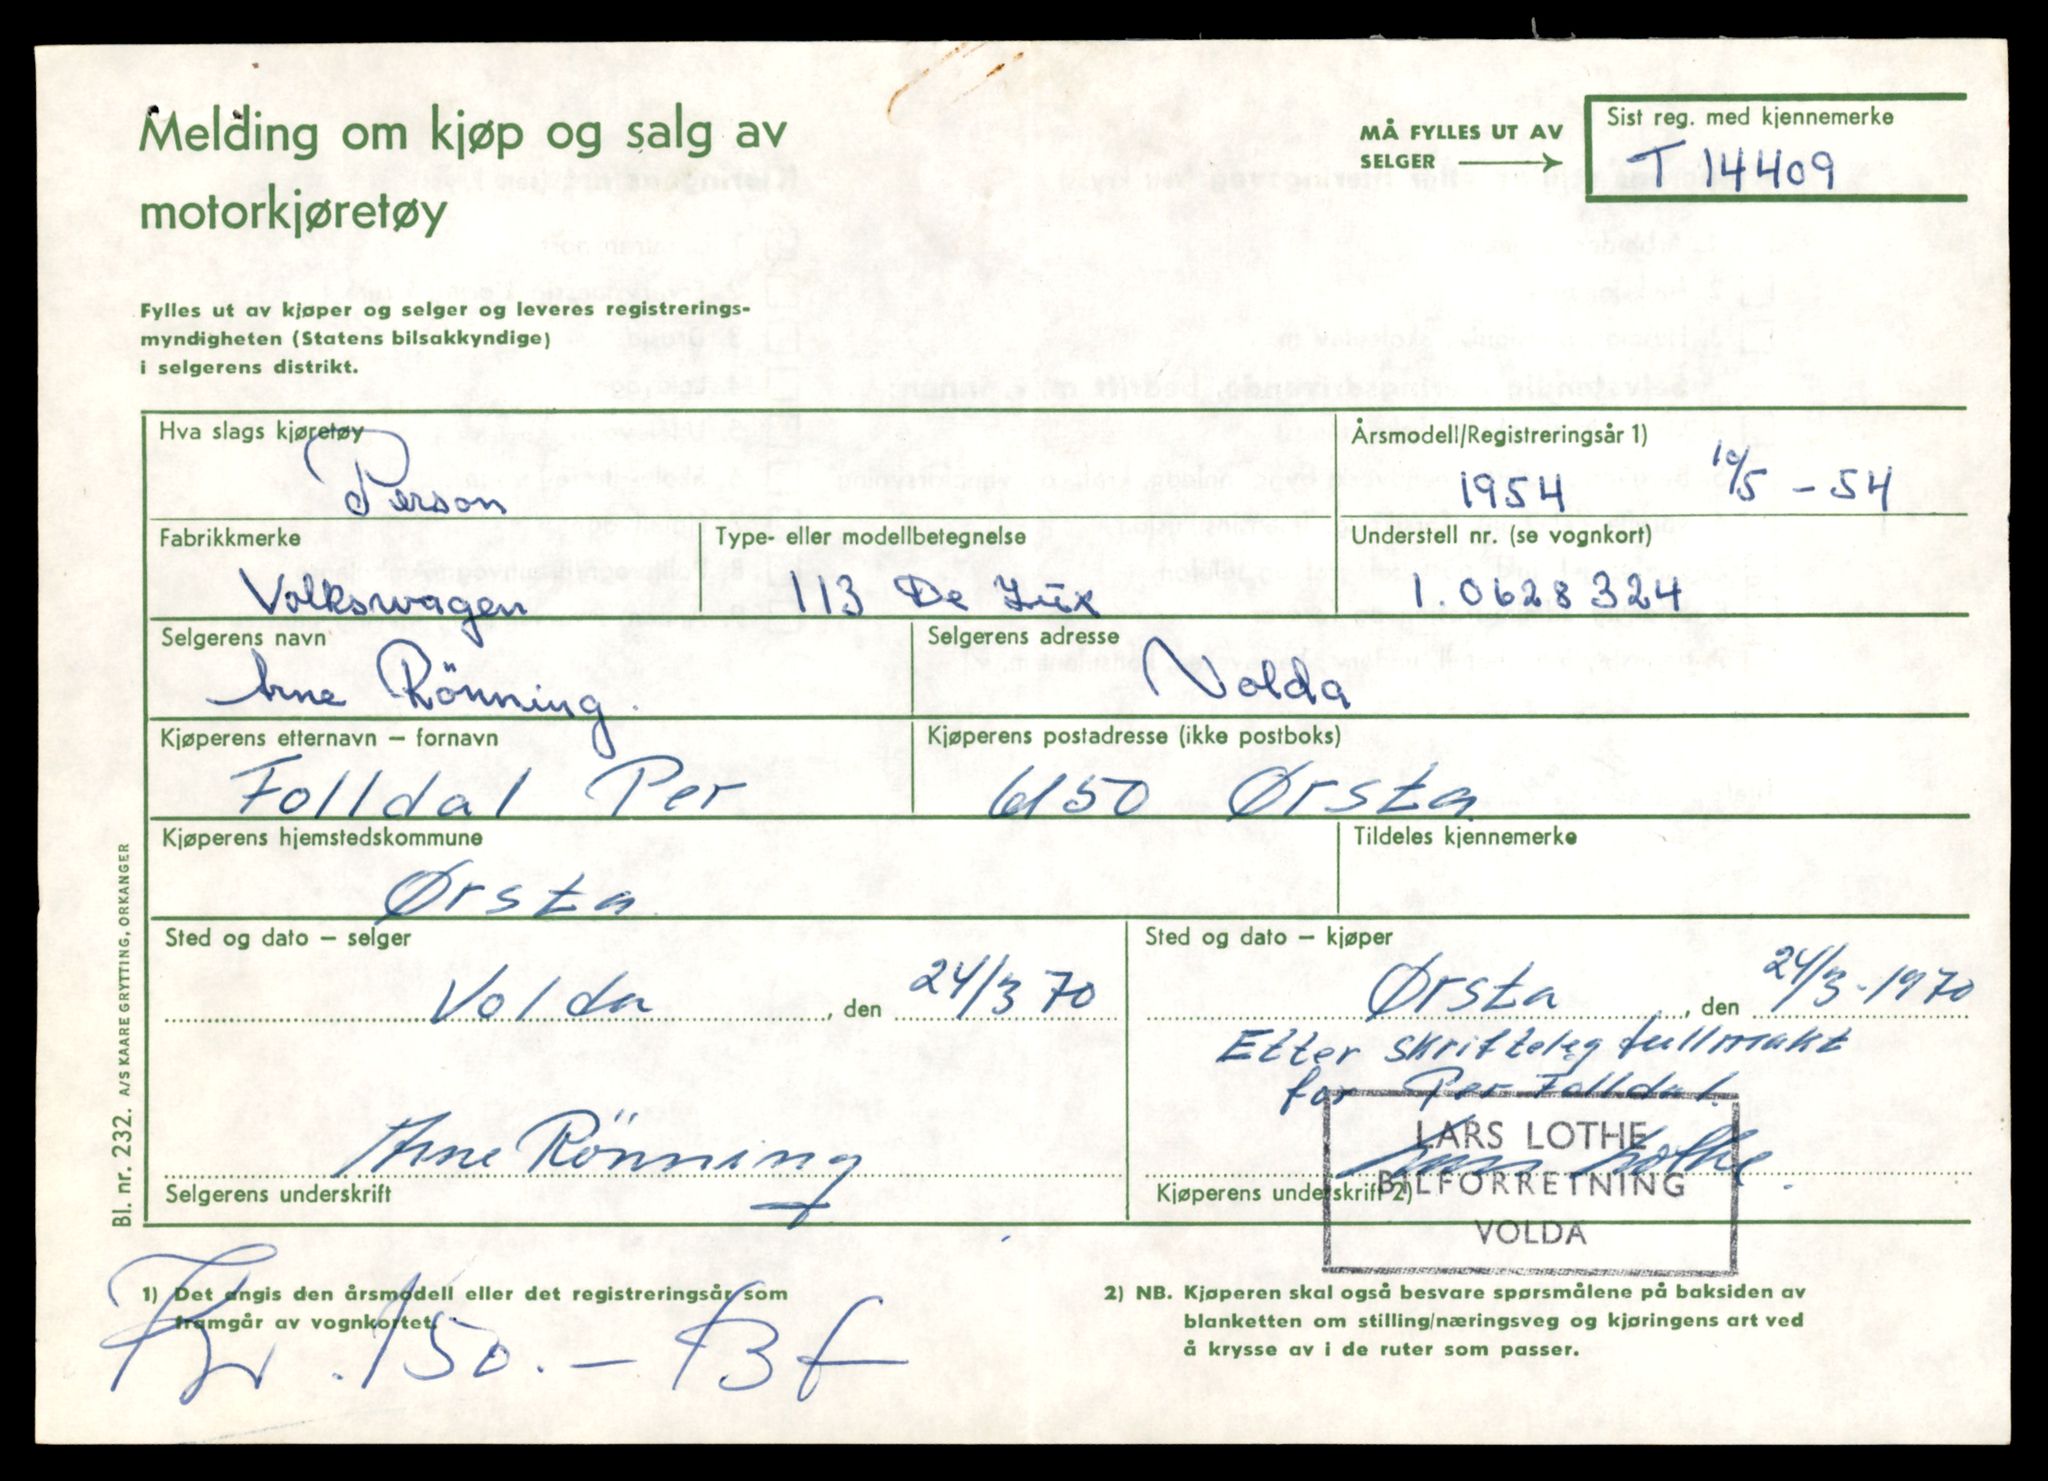 Melding om kjøp og salg av
motorkjøretøy
MÅ FYLLES UT AV
SELGER
Sist reg. med kjennemerke
T 14409
Fylles ut av kjøper og selger og leveres registrerings-
myndigheten (Statens bilsakkyndige)
i selgerens distrikt.
Hva slags kjøretøy
Person
Årsmodell/Registreringsår 1)
1954 10/5 - 54
Fabrikkmerke
Volkswagen
Type- eller modellbetegnelse
113 De Lux
Understell nr. (se vognkort)
1.0628324
Selgerens navn
Arne Rönning.
Selgerens adresse
Volda
Kjøperens etternavn – fornavn
Folldal Per
Kjøperens postadresse (ikke postboks)
6150 Ørsta
Kjøperens hjemstedskommune
Ørsta
Tildeles kjennemerke
Sted og dato – selger
Volda, den 24/3 70
Sted og dato – kjøper
Ørsta, den 24/3-1970
Etter skrifteleg fullmakt
for Per Folldal.
Arne Rönning
Selgerens underskrift
Lars Lothe.
Kjøperens underskrift 2)
LARS LOTHE
BILFORRETNING
VOLDA
Bl. nr. 232. A/S KAARE GRYTTING, ORKANGER
1) Det angis den årsmodell eller det registreringsår som
framgår av vognkortet.
Kr. 150.-
2) NB. Kjøperen skal også besvare spørsmålene på baksiden av
blanketten om stilling/næringsveg og kjøringens art ved
å krysse av i de ruter som passer.